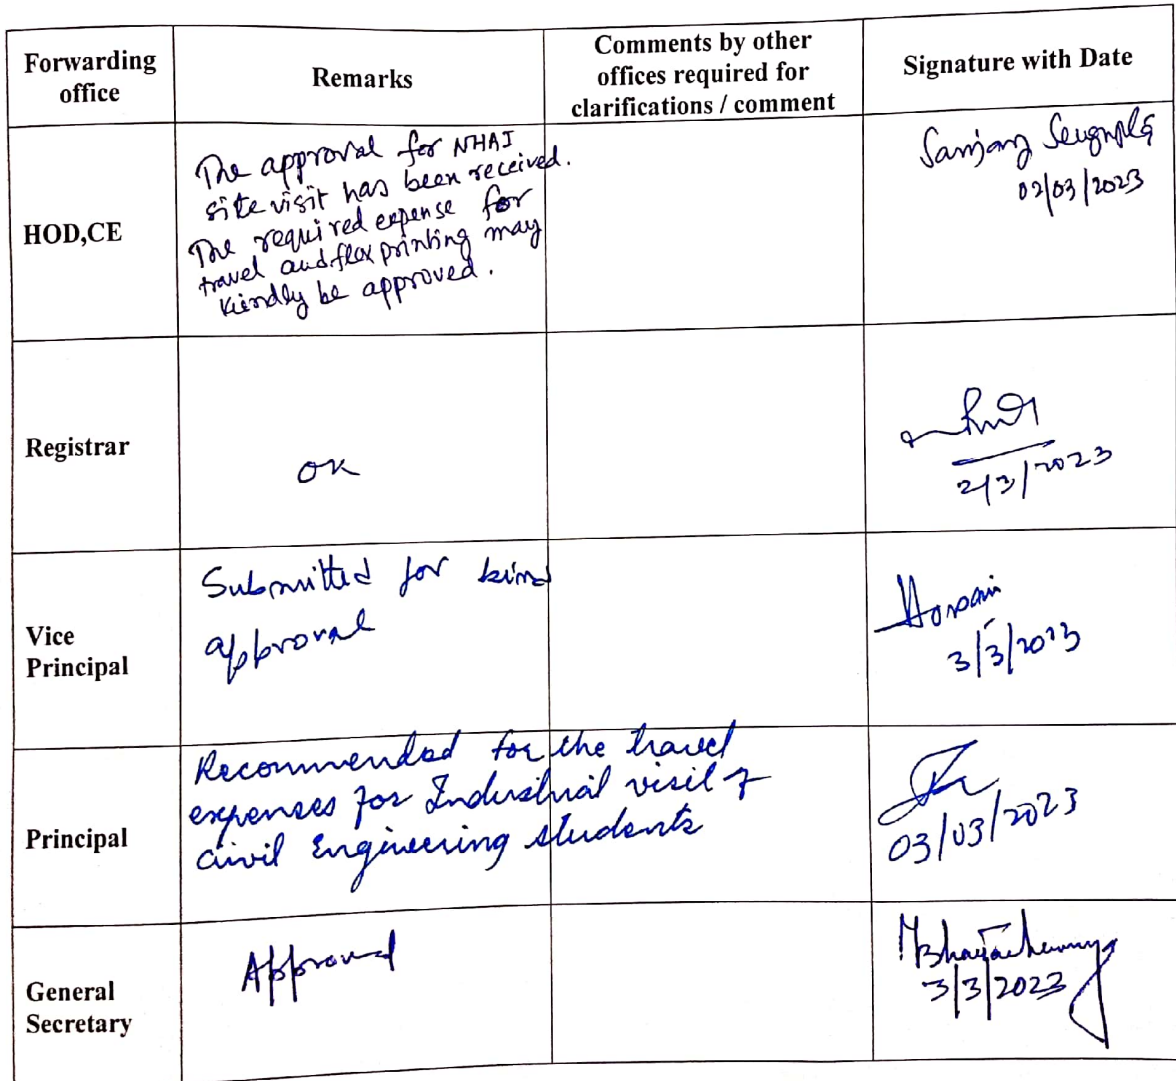 Forwarding
office
Remarks
Comments by other
offices required for
clarifications / comment
Signature with Date
HOD,CE
The approval for NHAI
site visit has been received.
The required expense for
travel and flex printing may
kindly be approved.
02/03/2023
Registrar
OK
2/3/2023
Vice
Principal
Submitted for kind
approval
3/3/2023
Principal
Recommended for the travel
expenses for Industrial visit of
civil Engineering students
03/03/2023
General
Secretary
Approved
3/3/2023